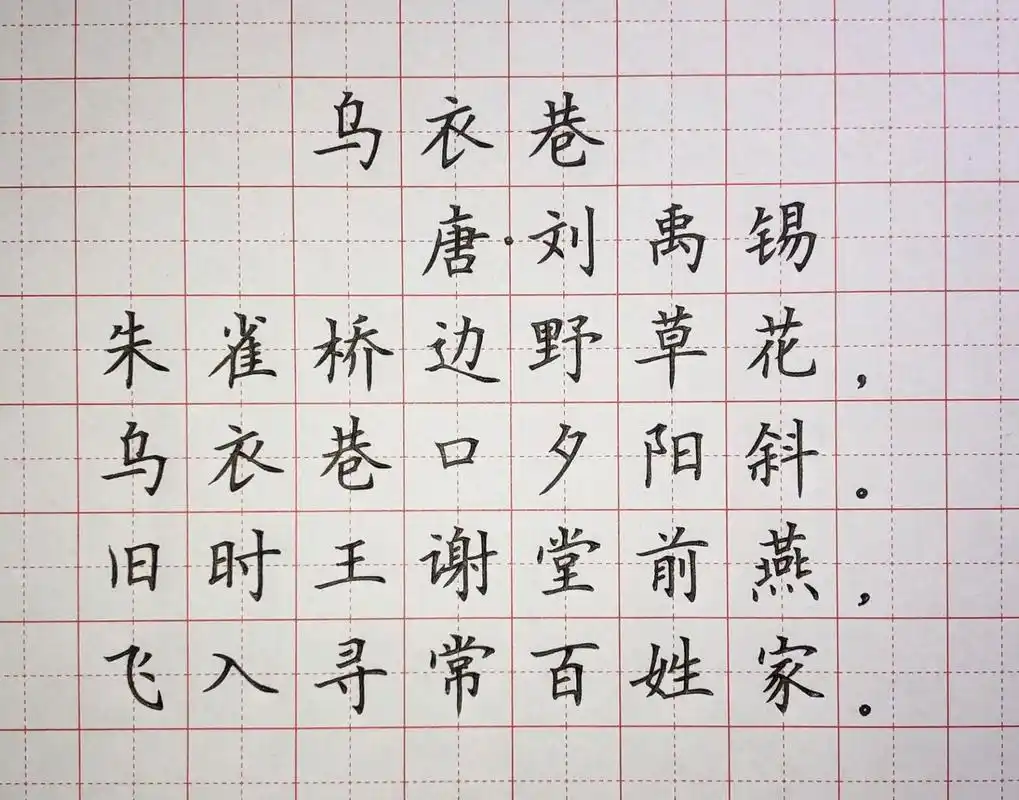 乌衣巷
唐·刘禹锡
朱雀桥边野草花，
乌衣巷口夕阳斜。
旧时王谢堂前燕，
飞入寻常百姓家。